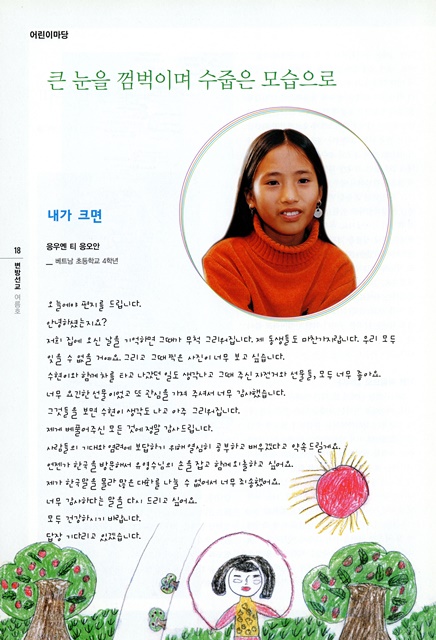 어린이마당
큰 눈을 껌벅이며 수줍은 모습으로
내가 크면
응우엔 티 응오안
베트남 초등학교 4학년
18
변방선교 여름호
오늘에야 편지를 드립니다.
안녕하셨는지요?
저희 집에 오신 날을 기억하면 그때가 무척 그리워집니다. 제 동생들도 마찬가지랍니다. 우리 모두
잊을 수 없을 거예요. 그리고 그때 찍은 사진이 너무 보고 싶습니다.
수현이와 함께 차를 타고 나갔던 일도 생각나고 그때 주신 자전거와 선물들, 모두 너무 좋아요.
너무 요긴한 선물이었고 또 관심을 가져 주셔서 너무 감사했습니다.
그것들을 보면 수현이 생각도 나고 아주 그리워집니다.
제게 베풀어주신 모든 것에 정말 감사드립니다.
사람들의 기대와 염려에 보답하기 위해 열심히 공부하고 배우겠다고 약속드릴게요.
언젠가 한국을 방문해서 유영수님의 손을 잡고 함께 외출하고 싶어요.
제가 한국말을 몰라 많은 대화를 나눌 수 없어서 너무 죄송했어요.
너무 감사하다는 말을 다시 드리고 싶어요.
모두 건강하시기 바랍니다.
답장 기다리고 있겠습니다.